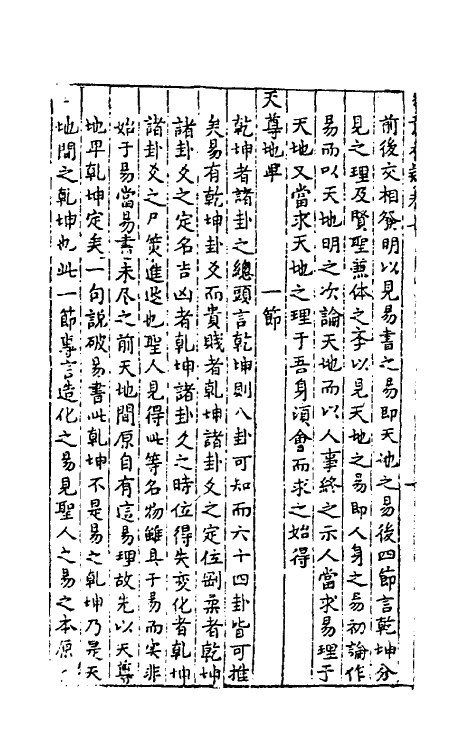 前後交相發明以見易書之易即天地之易後四節言乾坤分
見之理及賢聖兼体之李以見天地之易即人身之易初論作
易而以天地明之次論天地而以人事終之示人當求易理于
天地又當求天地之理于吾身湏會而求之始得
天尊地卑 一節
乾坤者諸卦之總頭言乾坤則八卦可知而六十四卦皆可推
矣易有乾坤卦爻而貴賤者乾坤諸卦爻之定位剛柔者乾坤
諸卦爻之定名吉凶者乾坤諸卦爻之時位得失变化者乾坤
諸卦爻之尸筴進退也聖人見得此等名物雖具于易而实非
始于易當易書未尽之前天地間原自有這易理故先以天尊
地卑乾坤定矣一句說破易書此乾坤不是易之乾坤乃是天
地間之乾坤也此一節專言造化之易見聖人之易之本原